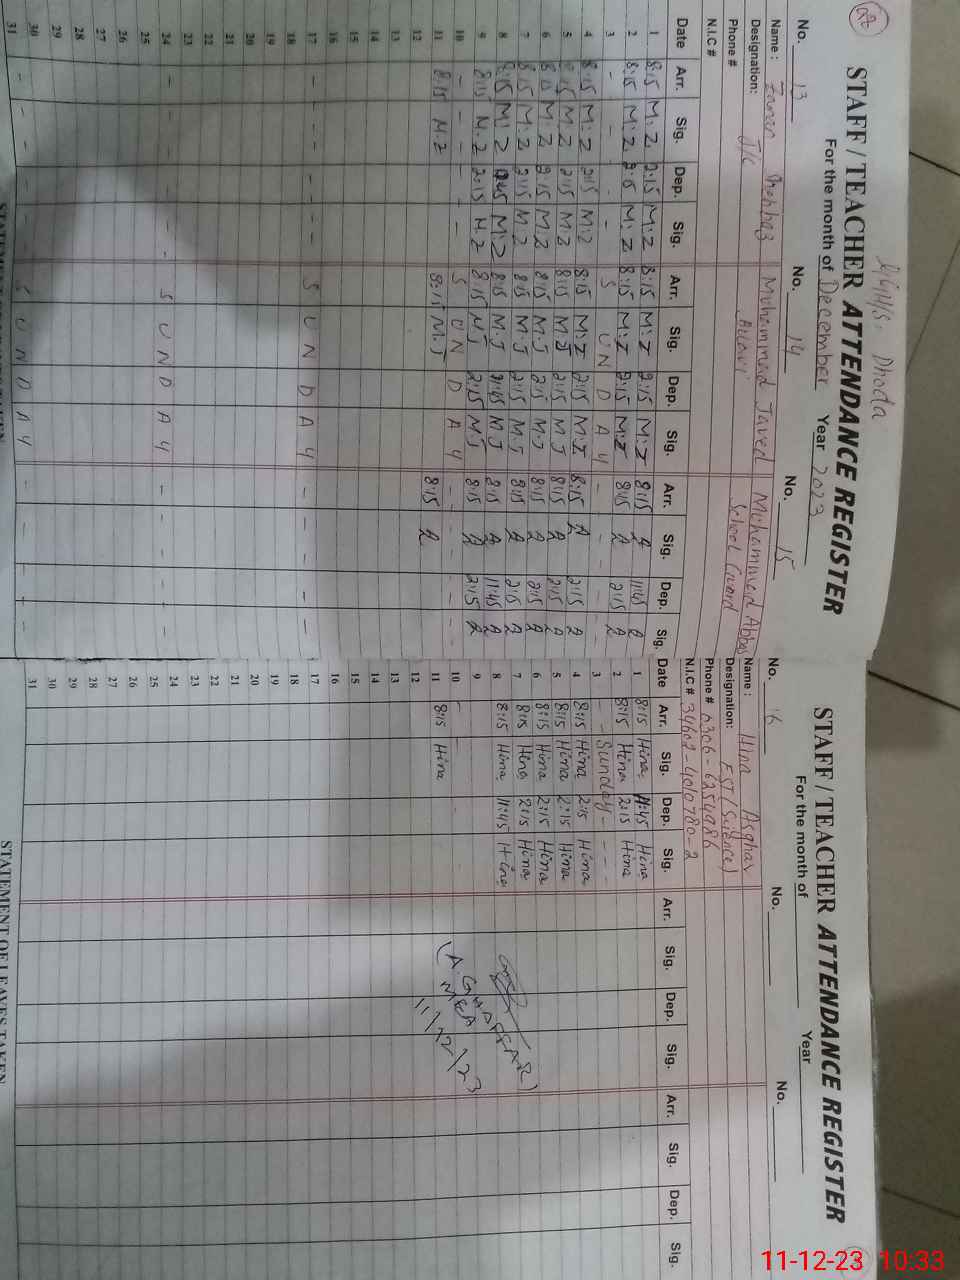 G.G.H/S. Dhoda
STAFF / TEACHER ATTENDANCE REGISTER
For the month of December Year 2023
No. 13 No. 14 No. 15
Name : Muhammad Javed Muhammad Abbas
Designation: J/C School Guard
Phone #
N.I.C #
Date Arr. Sig. Dep. Sig. Arr. Sig. Dep. Sig. Arr. Sig. Dep. Sig.
1 8:15 M.Z 2:15 M.Z 8:15 M.J 2:15 M.J 8:15 A 11:45 A
2 8:15 M.Z 2:15 M.Z 8:15 M.J 2:15 M.J 8:15 A 2:15 A
3 - - - - S U N D A Y - - - -
4 8:15 M.Z 2:15 M.Z 8:15 M.J 2:15 M.J 8:15 A 2:15 A
5 8:15 M.Z 2:15 M.Z 8:15 M.J 2:15 M.J 8:15 A 2:15 A
6 8:15 M.Z 2:15 M.Z 8:15 M.J 2:15 M.J 8:15 A 2:15 A
7 8:15 M.Z 2:15 M.Z 8:15 M.J 2:15 M.J 8:15 A 2:15 A
8 8:15 M.Z M.Z 8:15 M.J 11:45 M.J 8:15 A 11:45 A
9 8:15 M.Z 2:15 M.Z 8:15 M.J 2:15 M.J 8:15 A 2:15 A
10 - - - - S U N D A Y - - - -
11 8:15 M.Z 8:15 M.J 8:15 A
12
13
14
15
16
17 - - - - S U N D A Y - - - -
18
19
20
21
22
23
24 - - - - S U N D A Y - - - -
25
26
27
28
29
30
31 - - - - S U N D A Y - - - -
STAFF / TEACHER ATTENDANCE REGISTER
For the month of Year
No. 16 No. No.
Name : Hina Asghar
Designation: EST (Science)
Phone # 0306-6254986
N.I.C # 34602-4010780-2
Date Arr. Sig. Dep. Sig. Arr. Sig. Dep. Sig. Arr. Sig. Dep. Sig.
1 8:15 Hina 11:45 Hina
2 8:15 Hina 2:15 Hina
3 - - Sunday - - -
4 8:15 Hina 2:15 Hina
5 8:15 Hina 2:15 Hina
6 8:15 Hina 2:15 Hina
7 8:15 Hina 2:15 Hina
8 8:15 Hina 11:45 Hina
9
10 - -
11 8:15 Hina
12
13
14
15
16
17
18
19
20
21
22
23
24
25
26
27
28
29
30
31
(A. GHAFFAR)
MEA
11/12/23
STATEMENT OF LEAVES TAKEN
11-12-23 10:33